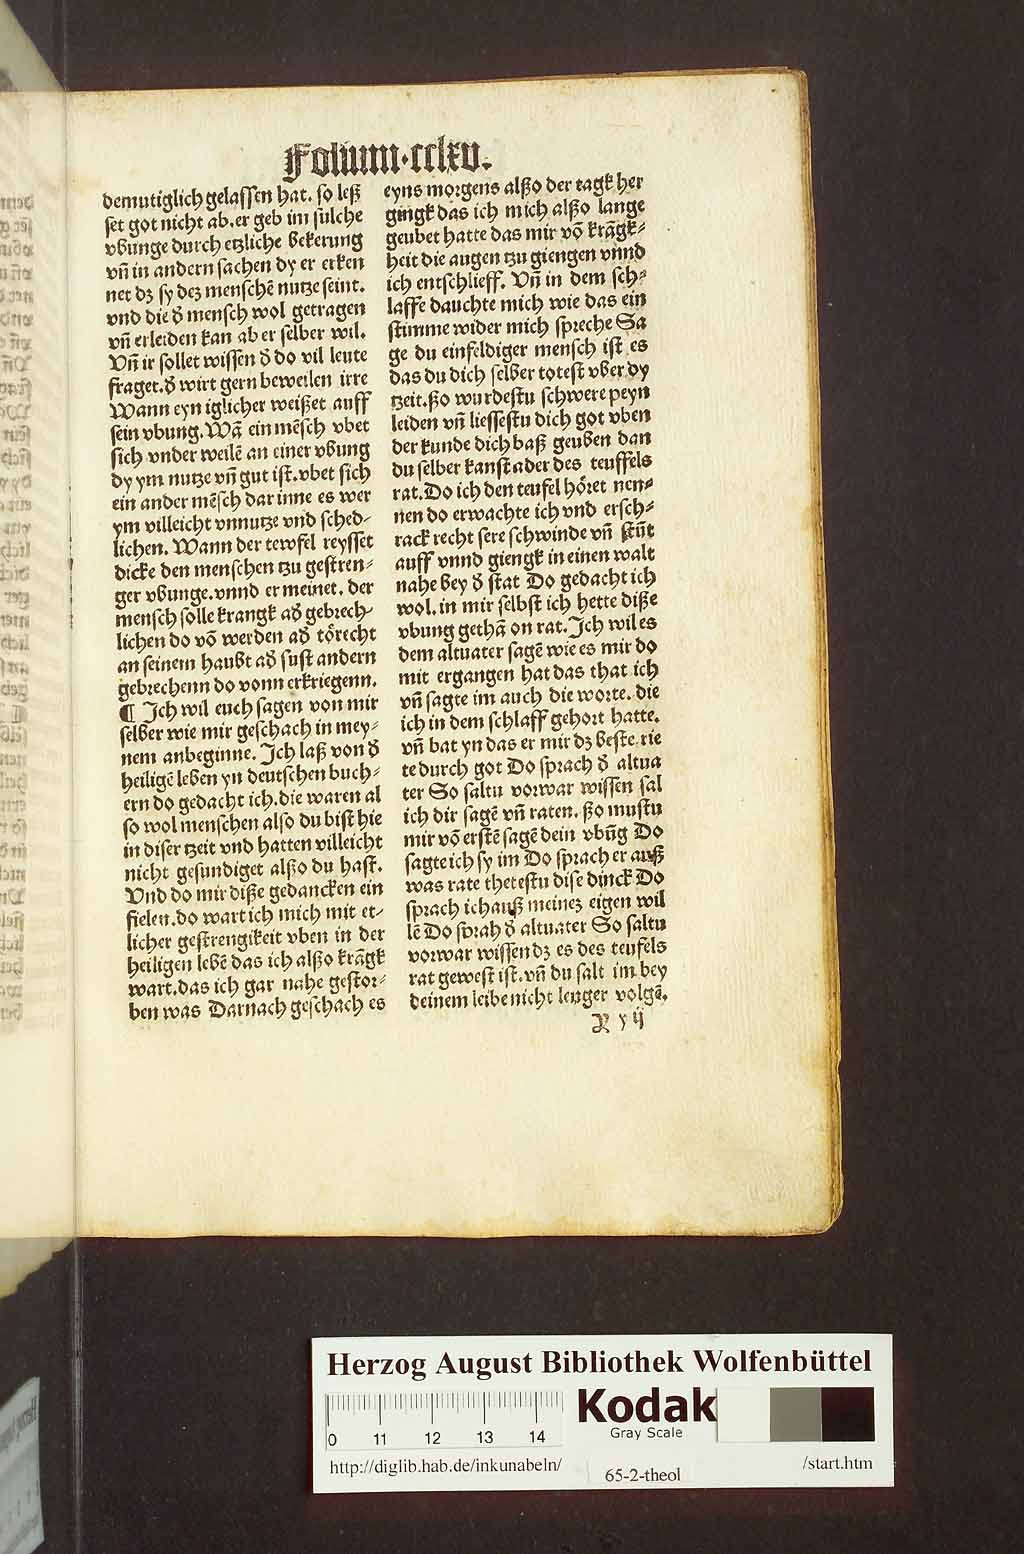 Folium·cclxv.
demutiglich gelassen hat. so leß
set got nicht ab. er geb im sůlche
vbunge durch etzliche bekerung
vñ in andern sachen dy er erken
net dz sy dez menschē nutze seint.
vnd die ď mensch wol getragen
vñ erleiden kan ab er selber wil.
Vñ ir sollet wissen ď do vil leute
fraget. ď wirt gern beweilen irre
Wann eyn iglicher weißet auff
sein vbung. Wā ein mēsch vbet
sich vnder weilē an einer vbung
dy ym nutze vñ gut ist. vbet sich
ein ander mēsch dar inne es wer
ym villeicht vnnutze vnd sched-
lichen. Wann der tewfel reysset
dicke den menschen tzu gestren-
ger vbunge. vnnd er meinet. der
mensch solle krangk aď gebrech-
lichen do vō werden aď tőrecht
an seinem haubt aď sust andern
gebrechenn do vonn erkriegenn.
¶ Ich wil euch sagen von mir
selber wie mir geschach in mey-
nem anbeginne. Ich laß von ď
heiligē leben yn deutschen buch-
ern do gedacht ich. die waren al
so wol menschen also du bist hie
in diser tzeit vnd hatten villeicht
nicht gesundiget alßo du hast.
Vnd do mir diße gedancken ein
fielen. do wart ich mich mit et-
licher gestrengikeit vben in der
heiligen lebē das ich alßo krāgk
wart. das ich gar nahe gestor-
ben was Darnach geschach es
eyns morgens alßo der tagk her
gingk das ich mich alßo lange
geubet hatte das mir vō krāgk-
heit die augen tzu giengen vnnd
ich entschlieff. Vñ in dem sch-
laffe dauchte mich wie das ein
stimme wider mich spreche Sa
ge du einfeldiger mensch ist es
das du dich selber totest vber dy
tzeit. ßo wurdestu schwere peyn
leiden vñ liessestu dich got vben
der kunde dich baß geuben dan
du selber kanst ader des teuffels
rat. Do ich den teufel hőret nen-
nen do erwachte ich vnd ersch-
rack recht sere schwinde vñ stūt
auff vnnd giengk in einen walt
nahe bey ď stat Do gedacht ich
wol. in mir selbst ich hette diße
vbung gethā on rat. Ich wil es
dem altuater sagē wie es mir do
mit ergangen hat das that ich
vñ sagte im auch die worte. die
ich in dem schlaff gehort hatte.
vñ bat yn das er mir dz beste. rie
te durch got Do sprach ď altua
ter So saltu vorwar wissen sal
ich dir sagē vñ raten. ßo mustu
mir vō erstē sagē dein vbūg Do
sagte ich sy im Do sprach er auß
was rate thetestu dise dinck Do
sprach ich auß meinez eigen wil
lē Do sprah ď altuater So saltu
vorwar wissen dz es des teufels
rat gewest ist. vñ du salt im bey
deinem leibe nicht lenger volgē.
R y ij
Herzog August Bibliothek Wolfenbüttel
0 11 12 13 14
Kodak
Gray Scale
http://diglib.hab.de/inkunabeln/
65-2-theol
/start.htm